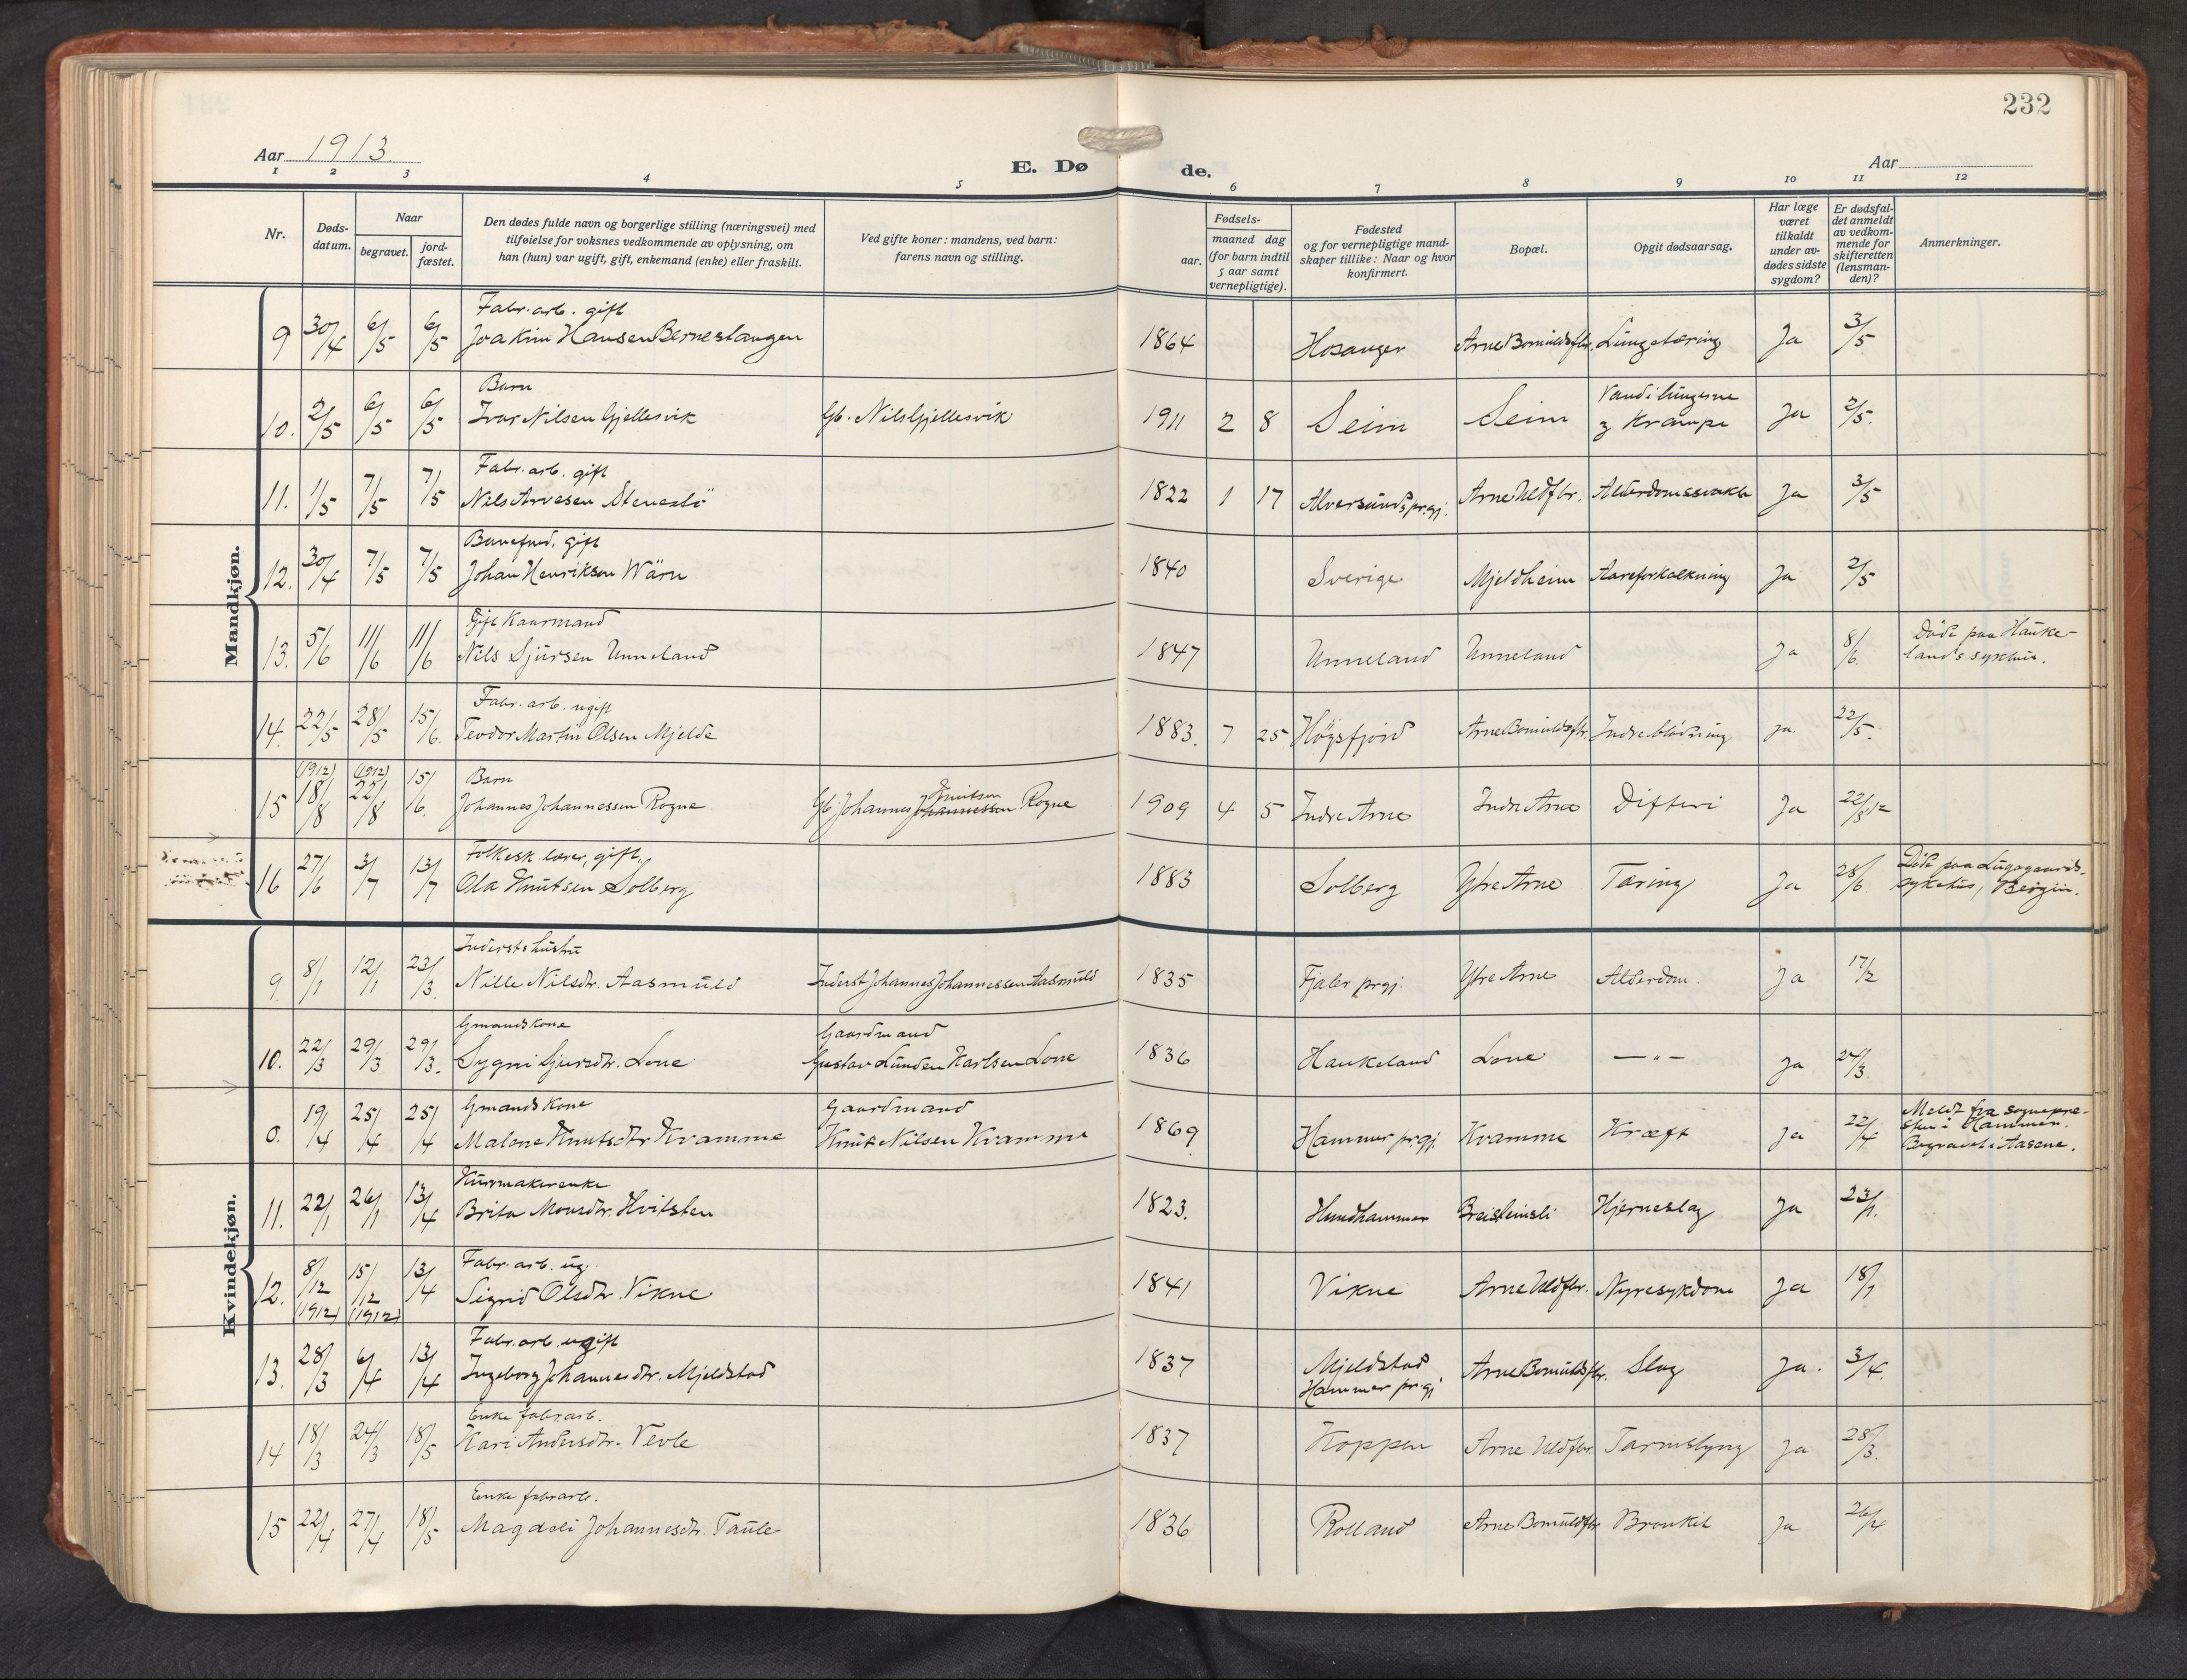 232
Aar 1913.
E. Døde.
Aar
1 2 3 4 5 6 7 8 9 10 11 12
Nr.
Døds-datum.
Naar
begravet.
jord-fæstet.
Den dødes fulde navn og borgerlige stilling (næringsvei) med
tilføielse for voksnes vedkommende av oplysning, om
han (hun) var ugift, gift, enkemand (enke) eller fraskilt.
Ved gifte koner: mandens, ved barn:
farens navn og stilling.
Fødsels-
aar.
maaned dag
(for barn indtil
5 aar samt
vernepligtige).
Fødested
og for vernepligtige mand-
skaper tillike: Naar og hvor
konfirmert.
Bopæl.
Opgit dødsaarsag.
Har læge
været
tilkaldt
under av-
dødes sidste
sygdom?
Er dødsfal-
det anmeldt
av vedkom-
mende for
skifteretten
(lensman-
den)?
Anmerkninger.
Mandkjøn.
Fabr. arb. gift
9 30/4 6/5 6/5 Joakim Hansen Bernestangen 1864 Hosanger Arne Bomuldsfbr. Lungetæring Ja 3/5
Barn Vand i lungerne
10. 2/5 6/5 6/5 Ivar Nilsen Gjellesvik Gb. Nils Gjellesvik 1911 2 8 Seim Seim og Krampe Ja 2/5.
Fabr. arb. gift
11. 1/5 7/5 7/5 Nils Arvesen Stenestö 1822 1 17 Alversunds pr.gj. Arne Uldfbr. Alderdomssvakh. Ja 3/5
Banefmd. gift
12. 30/4 7/5 7/5 Johan Henriksen Wärn 1840 Sverige Mjeldheim Aareforkalkning Ja 2/5
Gift Kaarmand
13. 5/6 11/6 11/6 Nils Sjursen Unneland 1847 Unneland Unneland Ja 8/6. Døde paa Hauke-
lands sykhus.
Fabr. arb. ugift
14. 22/5 28/5 15/6. Teodor Martin Olsen Mjelde 1883. 7 25 Högsfjord Arne Bomuldsfbr. Indre blödning Ja 22/5.
(1912) (1912) Barn Knutson
15 18/8 22/8 15/6. Johannes Johannessen Rogne Gb. Johannes Johannessen Rogne 1909 4 5 Indre Arne Indre Arne Difteri Ja 22/8 12
Folkesk. lærer, gift.
16 27/6 3/7 13/7 Ola Knutsen Solberg 1883 Solberg Ytre Arne Tæring Ja 28/6. Døde paa Lungegaards-
sykehus, Bergen.
Kvindekjøn.
Inderstshustru
9. 8/1 12/1 23/3. Nille Nilsdtr. Aasmuld Inderst Johannes Johannessen Aasmuld 1835 Fjaler prgj. Ytre Arne Alderdom. Ja 17/2
Gmandskone Gaardmand
10. 22/3 29/3 29/3. Sygni Sjursdtr. Lone Gustav Lunden Karlsen Lone 1836 Haukeland Lone — „ — Ja 24/3.
Gmandskone Gaardmand
0. 19/4 25/4 25/4 Malene Knutsdtr Kvamme Knut Nilsen Kvamme 1869 Hammer pr.gj. Kvamme Kræft Ja 22/4 Meldt fra sognepre-
sten i Hammer.
Begravet i Aasene.
Kurvmakerenke
11. 22/1 26/1 13/4 Brita Monsdtr. Hvitsten 1823. Hundhammer Breisteinsli Hjerneslag Ja 23/1.
Fabr. arb. ug.
12. 8/12 (1912) 15/12 (1912) 13/4 Sigrid Olsdtr. Vikne 1841 Vikne Arne Uldfbr. Nyresykdom Ja 18/1
Fabr. arb. ugift
13. 28/3 6/4 13/4 Ingeborg Johannesdtr. Mjeldstad 1837 Mjeldstad Hammer prgj Arne Bomuldsfbr. Slag Ja. 3/4.
Enke fabr.arb.
14 18/3 24/3 18/5 Kari Andersdtr. Vevle 1837 Koppen Arne Uldfbr. Tarmslyng Ja 28/3.
Enke fabr.arb.
15 22/4 27/4 18/5 Magdeli Johannesdtr. Taule 1836 Rolland Arne Bomuldfbr Bronkit Ja 26/4